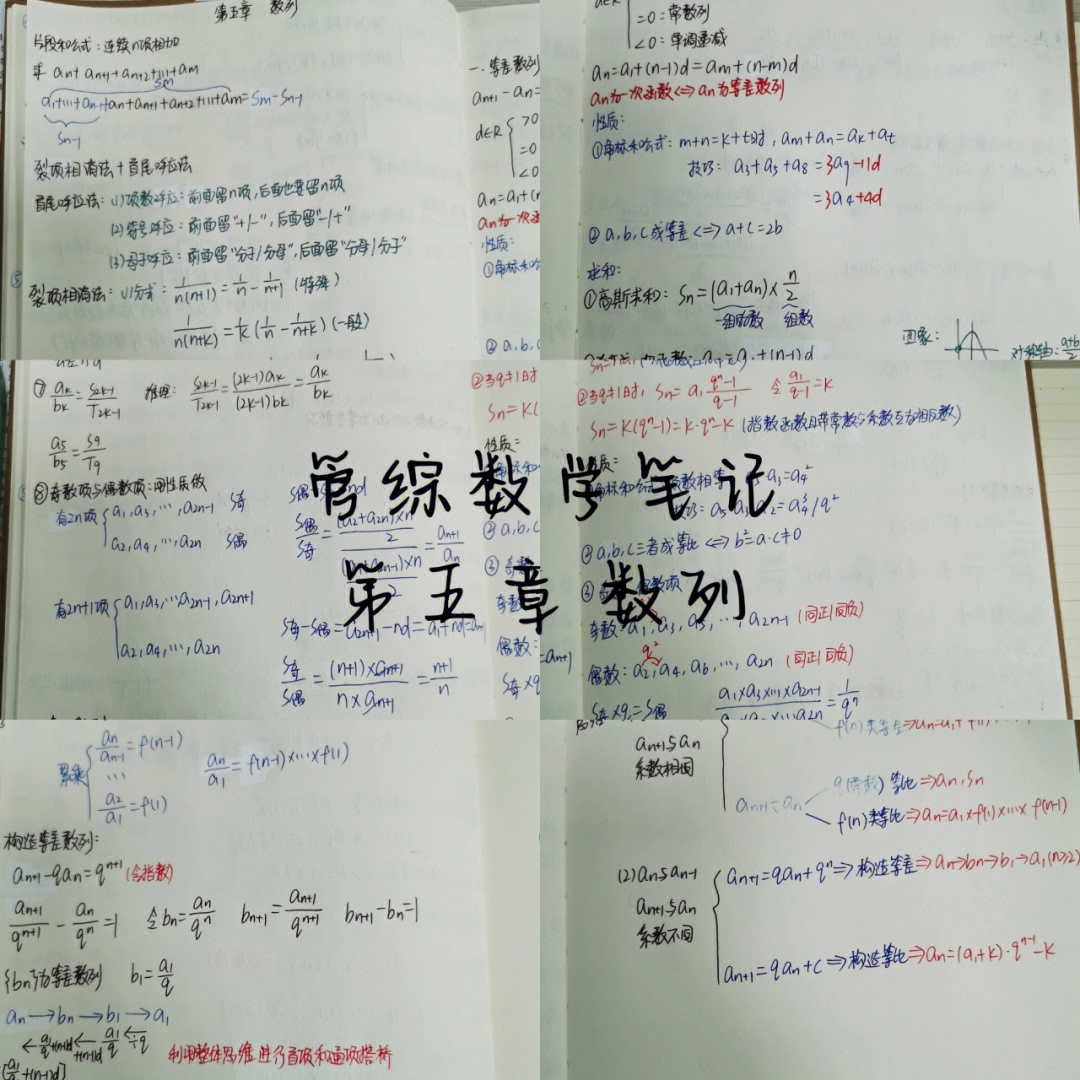 第五章 数列
片段和公式：连续n项相加
求 an+an+1+an+2+…+am
Sm
a1+…+an-1+an+an+1+an+2+…+am=Sm-Sn-1
Sn-1
裂项相消法+首尾呼应法
首尾呼应法：(1)项数呼应：前面留n项，后面也要留n项
(2)符号呼应：前面留“+/-”，后面留“-/+”
(3)母子呼应：前面留“分子/分母”，后面留“分母/分子”
裂项相消法：(1)分式：1/n(n+1)=1/n-1/n+1 (特殊)
1/n(n+k)=1/k(1/n-1/n+k) (一般)
一、等差数列
an+1-an=
d∈R { >0
=0
<0
an=a1+(n
an为一次函
性质：
①角标和公
② a,b,c
=0：常数列
<0：单调递减
an=a1+(n-1)d=am+(n-m)d
an为一次函数<=>an为等差数列
性质：
①角标和公式：m+n=k+t时，am+an=ak+at
技巧：a3+a5+a8=3a9-11d
=3a4+4d
② a,b,c成等差<=>a+c=2b
求和：
①高斯求和：Sn=(a1+an)×n/2
一组的数 组数
图象：
对称轴：a+b/2
⑦ ak/bk=S2k-1/T2k-1 推理：S2k-1/T2k-1=(2k-1)ak/(2k-1)bk=ak/bk
a5/b5=S9/T9
⑧奇数项与偶数项：用性质做
有2n项 { a1,a3,…,a2n-1 S奇
a2,a4,…,a2n S偶
S偶/S奇=(a2+a2n)×n/2 =an+1/an
有2n+1项 { a1,a3,…a2n-1,a2n+1
a2,a4,…,a2n
S奇-S偶=a2n+1-nd=a1+nd=an+1
S奇/S偶=(n+1)×an+1/n×an+1=n+1/n
②当q≠1时
Sn=K(
性质：
②当q≠1时，Sn=a1 qn-1/q-1 令a1/q-1=K
Sn=K(qn-1)=K·qn-K (指数函数且带常数与系数互为相反数)
③ a,b,c三者成等比<=>b2=a·c≠0
奇数：a1,a3,a5,…,a2n-1 (同正/同负)
q2
偶数：a2,a4,a6,…,a2n (同正/同负)
S奇×q=S偶
a1×a3×…×a2n-1 =1/qn
管综数学笔记
第五章数列
累乘 { an/an-1=f(n-1)
…
a2/a1=f(1)
an/a1=f(n-1)×…×f(1)
构造等差数列：
an+1-qan=qn+1 (含指数)
an+1/qn+1-an/qn=1 令bn=an/qn bn+1=an+1/qn+1 bn+1-bn=1
{bn}为等差数列 b1=a1/q
an→bn→b1→a1
←a1/q+(n-1)d ←+(n-1)d a1/q ←÷q
利用整体思维进行首项和通项搭桥
an+1与an
系数相同
an+1÷an
q(常数) 等比⇒an,Sn
f(n)类等比⇒an=a1×f(1)×…×f(n-1)
(2)an与an-1
an+1与an
系数不同
an+1=qan+qn⇒构造等差⇒an→bn→b1→a1(n≥2)
an+1=qan+c⇒构造等比⇒an=(a1+k)·qn-1-k